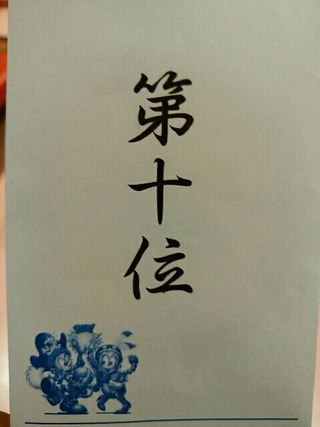 第十位